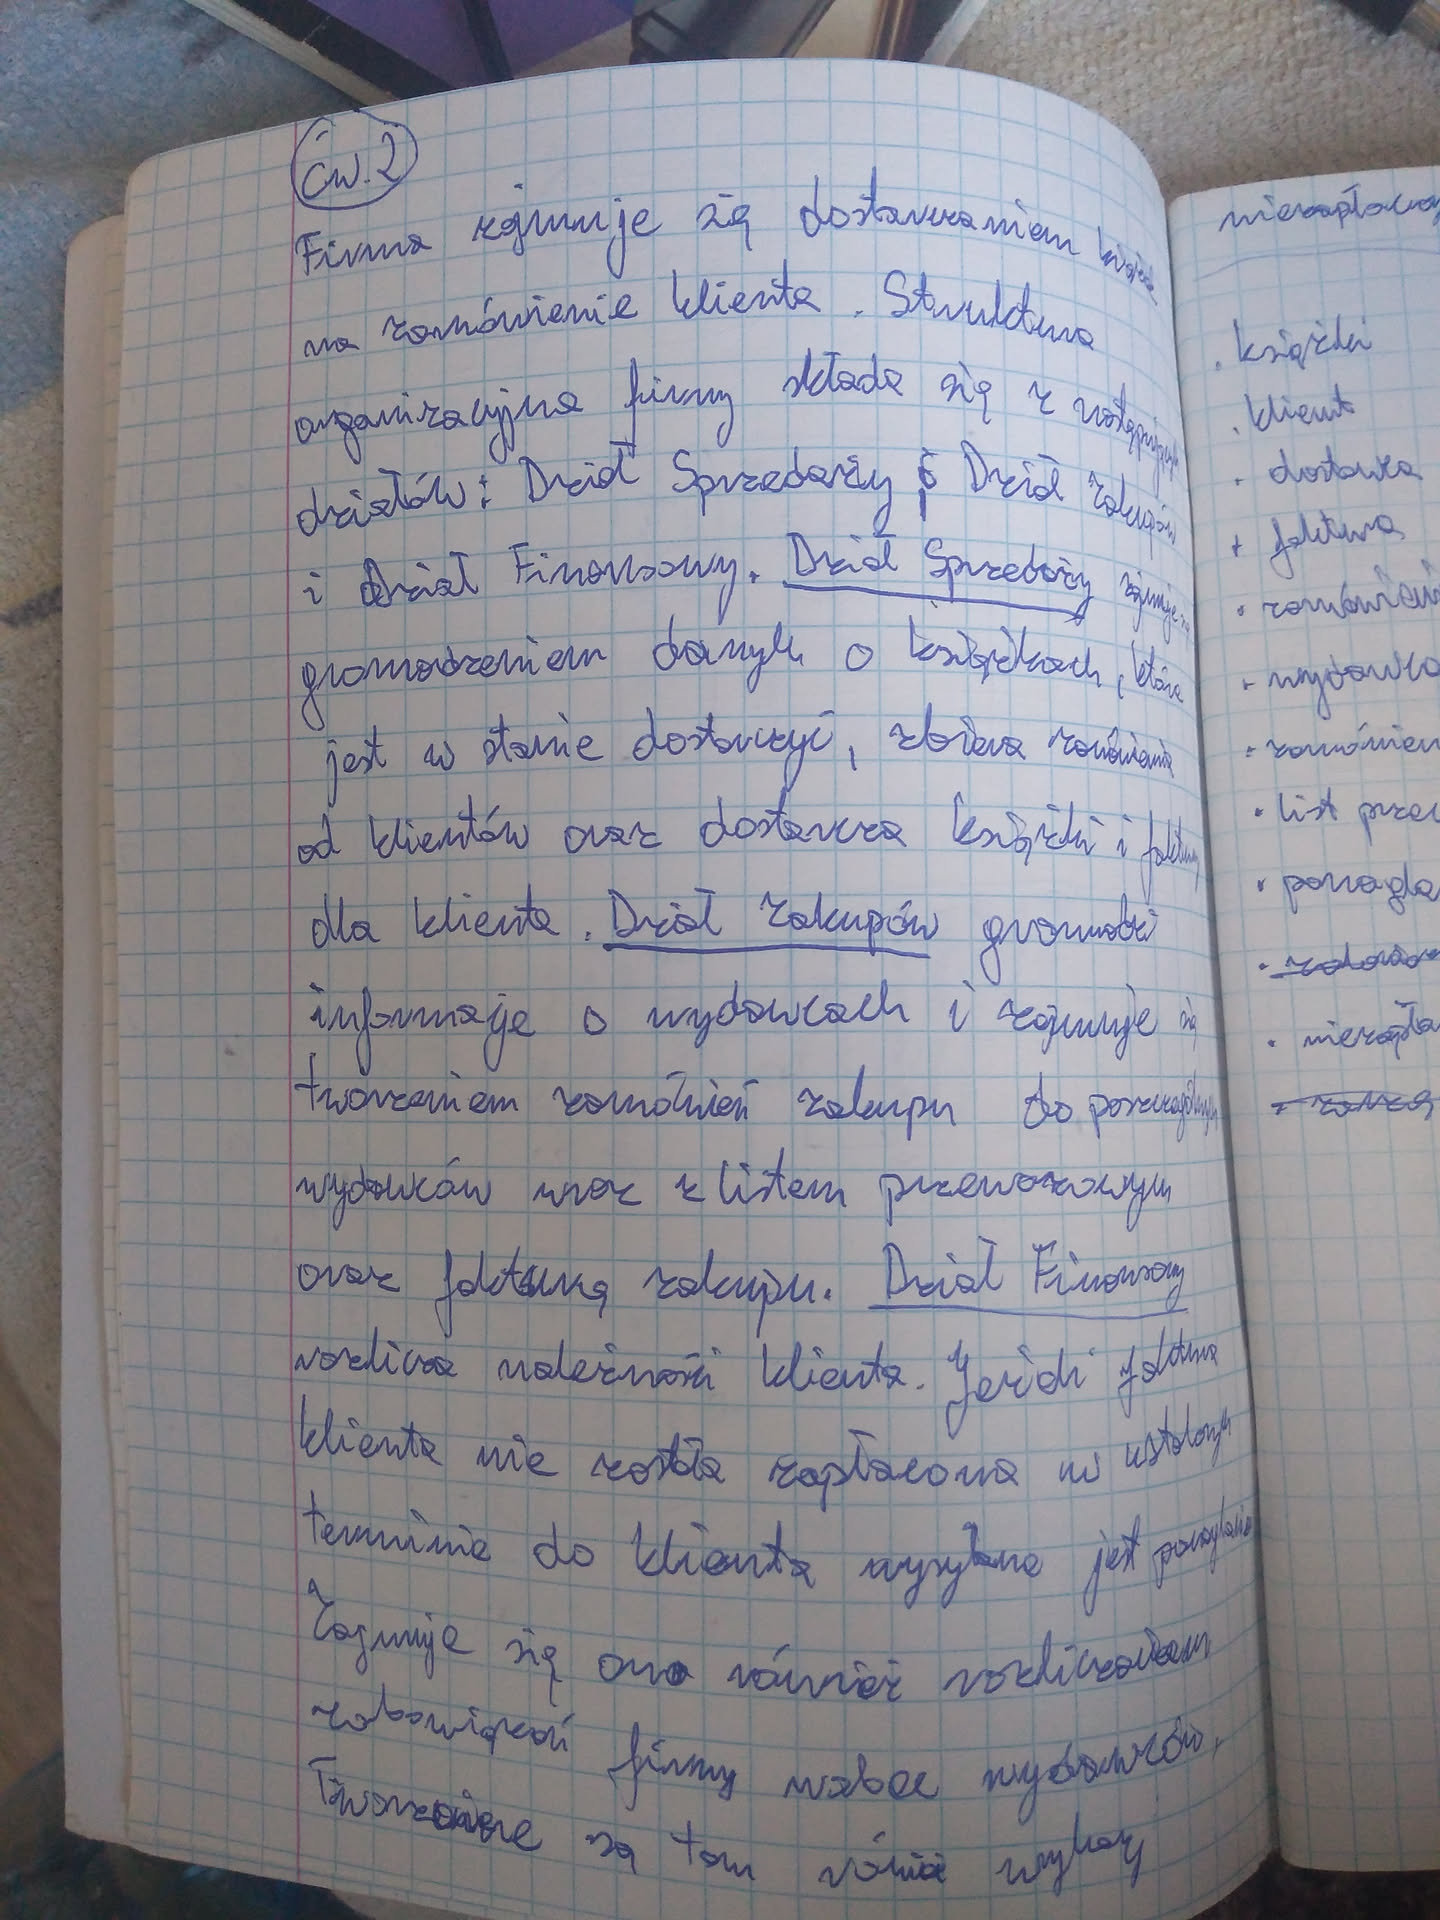 ćw. 2
Firma zajmuje się dostarczaniem książek
na zamówienie klienta. Struktura
organizacyjna firmy składa się z następujących
działów: Dział Sprzedaży, Dział zakupów
i Dział Finansowy. Dział Sprzedaży zajmuje się
gromadzeniem danych o książkach, które
jest w stanie dostarczyć, zbiera zamówienia
od klientów oraz dostarcza książki i faktury
dla klienta. Dział zakupów gromadzi
informacje o wydawcach i zajmuje się
tworzeniem zamówień zakupu do poszczególnych
wydawców wraz z listem przewozowym
oraz fakturą zakupu. Dział Finansowy
rozlicza należności klienta. Jeżeli faktura
klienta nie została zapłacona w ustalonym
terminie do klienta wysyłane jest ponaglenie
Zajmuje się ono również rozliczaniem
zobowiązań firmy wobec wydawców.
Tworzone są tam różne wykazy
niezapłacony
. książki
. klient
. dostawca
+ faktura
. zamówieni
. wydawca
. zamówien
. list prze
. ponagla
. niezapła